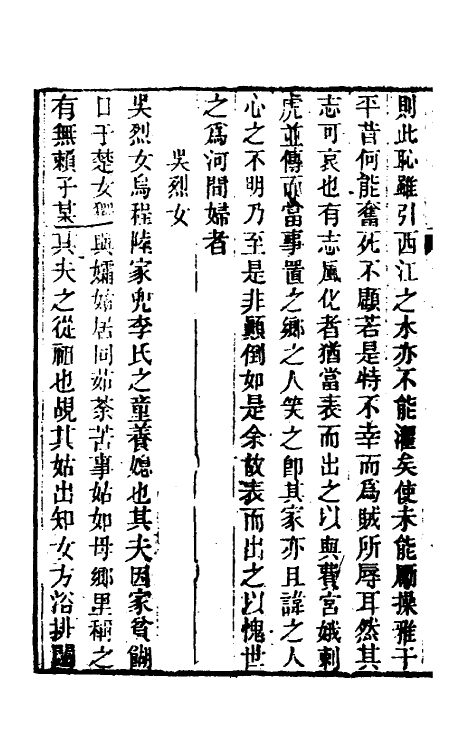 則此恥雖引西江之水亦不能濯矣使未能厲操雅于
平昔何能奮死不顧若是特不幸而爲賊所辱耳然其
志可哀也有志風化者猶當表而出之以與費宮娥刺
虎並傳而當事置之鄉之人笑之卽其家亦且諱之人
心之不明乃至是非顚倒如是余故表而出之以愧世
之爲河間婦者
吳烈女
吳烈女烏程陸家兜李氏之童養媳也其夫因家貧餬
口于楚女獨與孀姑居同茹荼苦事姑如母鄉里稱之
有無賴子某其夫之從祖也覘其姑出知女方浴排闥